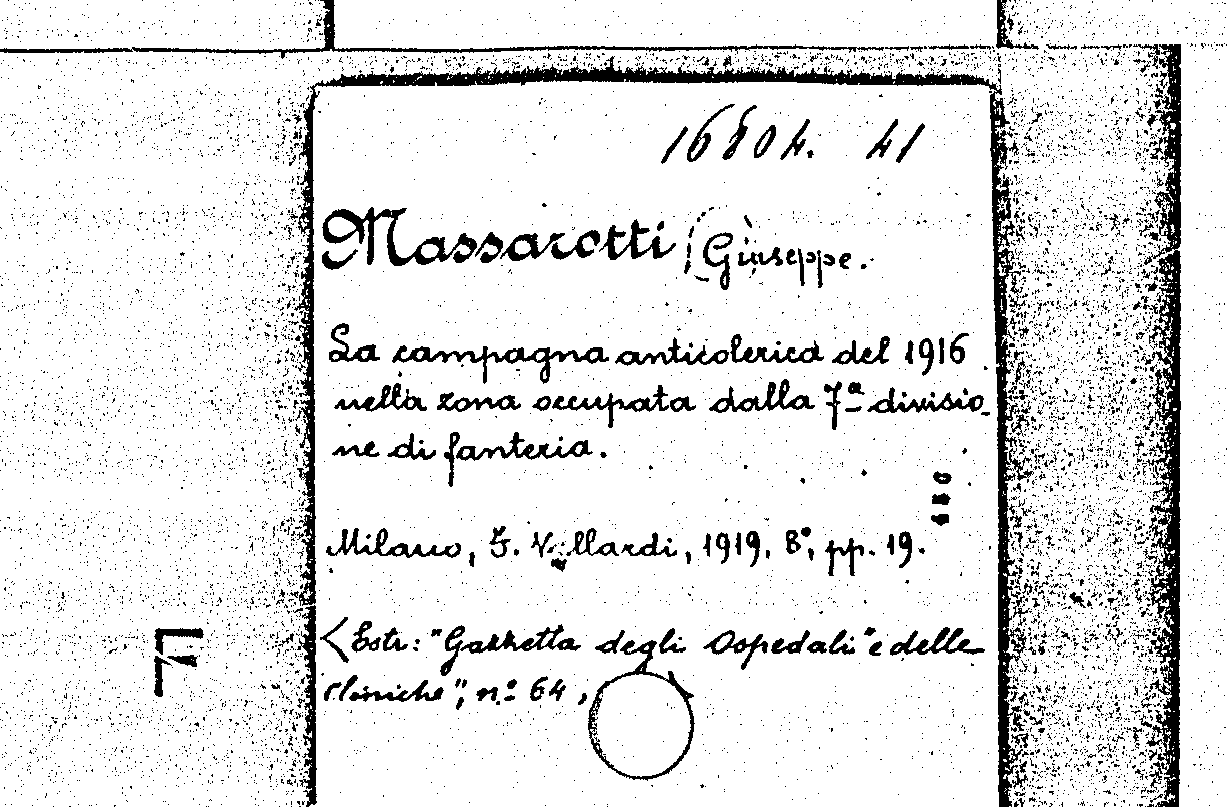 16804. 41
Massarotti (Giuseppe.
La campagna anticolerica del 1916
nella zona occupata dalla 7ª divisio-
ne di fanteria.
Milano, F. Vallardi, 1919, 8°, pp. 19.
<Estr: "Gazzetta degli Ospedali" e delle
cliniche", n.° 64,
F